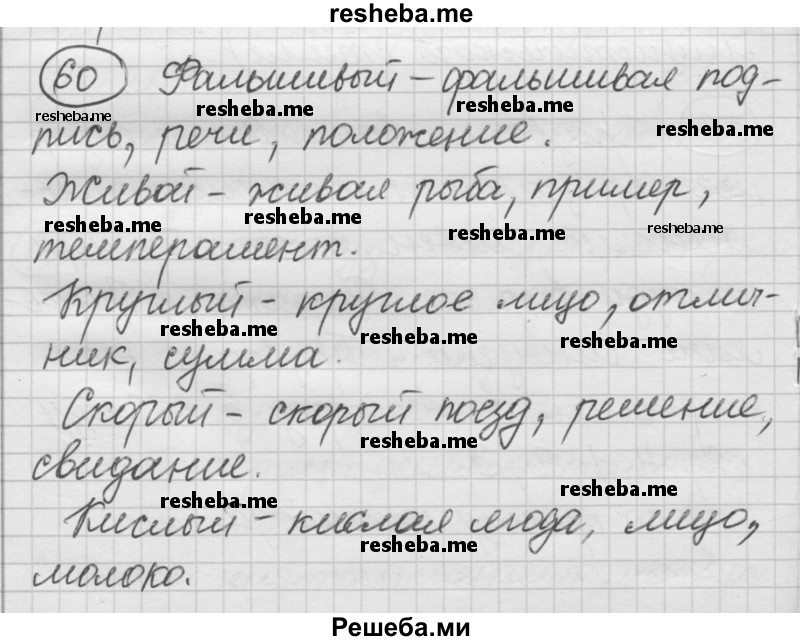 resheba.me
60 Фальшивый - фальшивая под-
resheba.me resheba.me resheba.me resheba.me
пись, речи, положение.
Живой - живая рыба, пример,
resheba.me resheba.me resheba.me resheba.me
темперамент.
Круглый - круглое лицо, отлич-
resheba.me resheba.me resheba.me
ник, сумма.
Скорый - скорый поезд, решение,
resheba.me
свидание.
resheba.me resheba.me
Кислый - кислая ягода, лицо,
resheba.me
молоко.
Решеба.ми